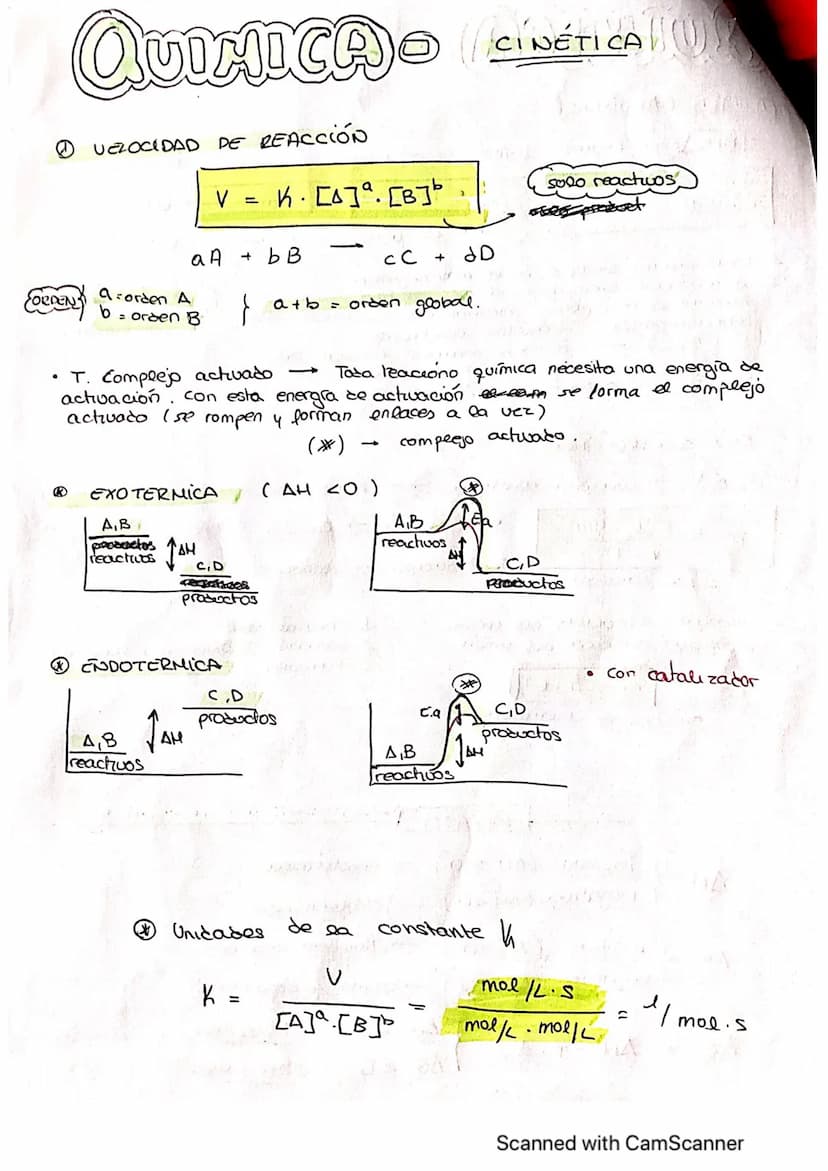 QUIMICA - CINÉTICA
① VELOCIDAD DE REACCIÓN
V = K · [A]ᵃ · [B]ᵇ
solo reactivos
aA + bB → cC + dD
ORDEN
a = orden A
b = orden B
a+b = orden global.
• T. Complejo activado → Toda reacciono química necesita una energía de
activación. con esta energía de activación se forma el complejo
activado (se rompen y forman enlaces a la vez)
(*) → complejo activado.
* EXOTERMICA (ΔH <0)
A,B
reactivos
ΔH
C,D
productos
*
A,B
reactivos
Ea
ΔH
C,D
productos
* ENDOTERMICA
• con catalizador
C,D
productos
A,B
reactivos
ΔH
*
E.a
C,D
productos
A,B
reactivos
ΔH
* Unidades de la constante K
K = V / [A]ᵃ·[B]ᵇ = mol/L·s / mol/L · mol/L = l/mol·s
Scanned with CamScanner